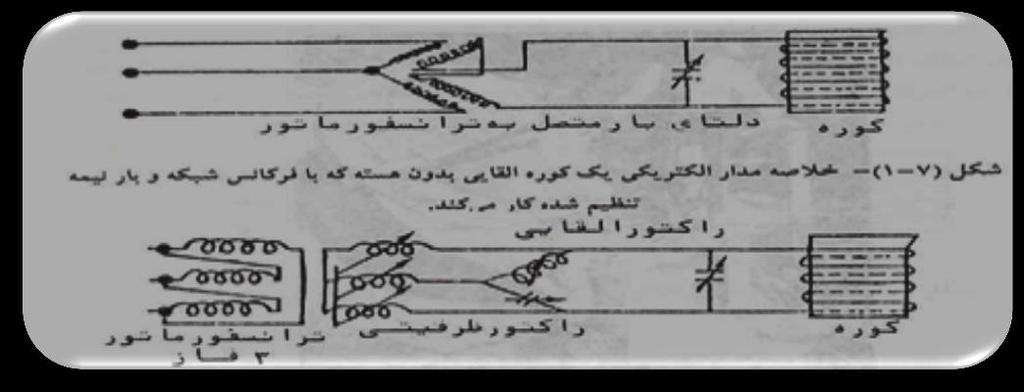 دلتای بار متصل به ترانسفورماتور
کوره
شکل (۷-۱)- خلاصه مدار الکتریکی یک کوره القایی بدون هسته که با فرکانس شبکه و بار نیمه
تنظیم شده کار می‌کند.
راکتور القایی
راکتور ظرفیتی
کوره
ترانسفورماتور
۳ فاز